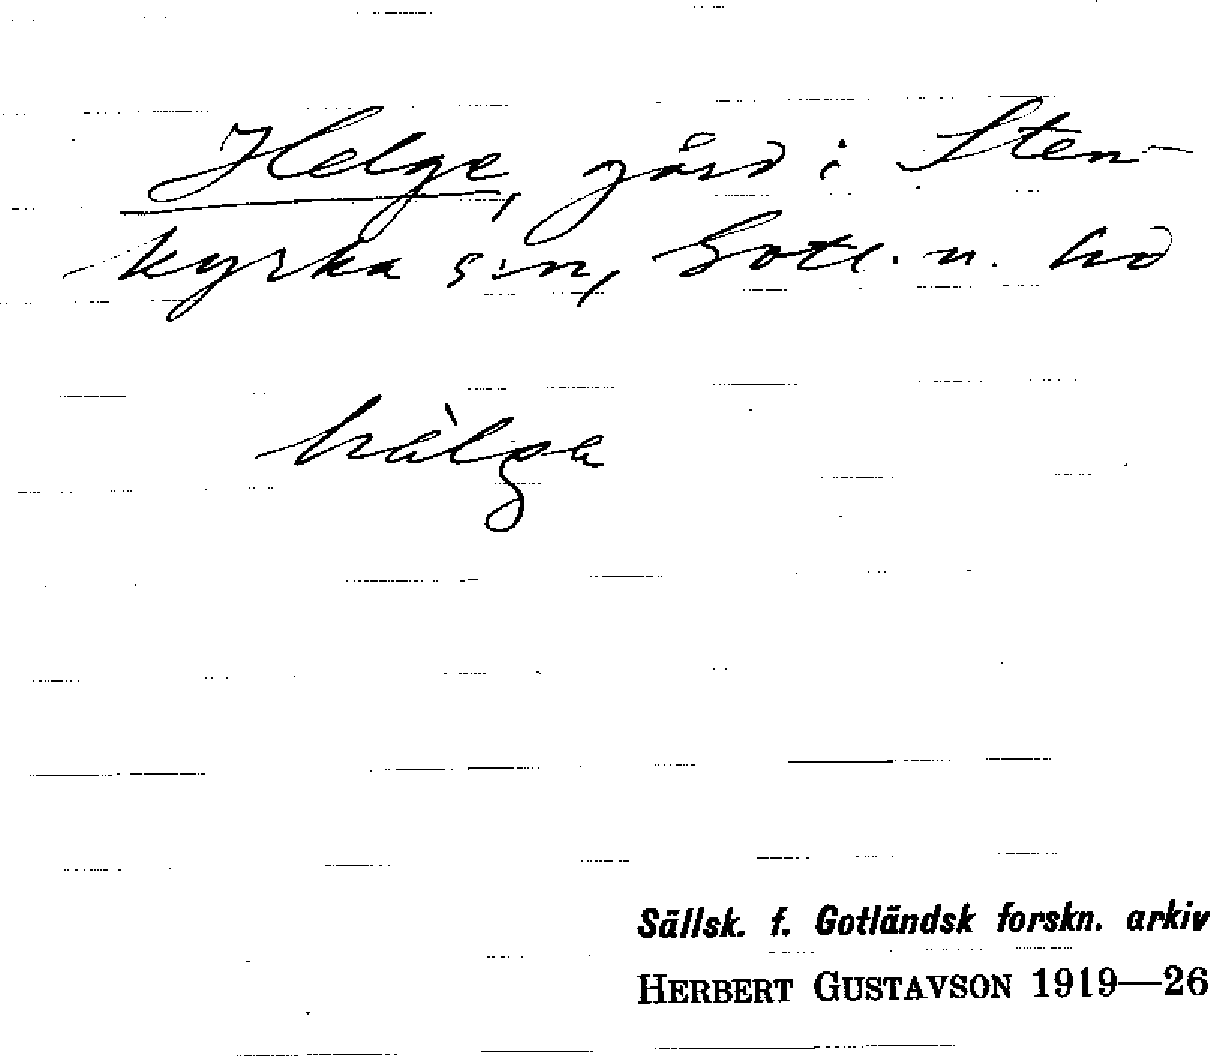 Helge, gård i Sten-
kyrka s:n, Gotl. n. hd
hàlge
Sällsk. f. Gotländsk forskn. arkiv
HERBERT GUSTAVSON 1919—26